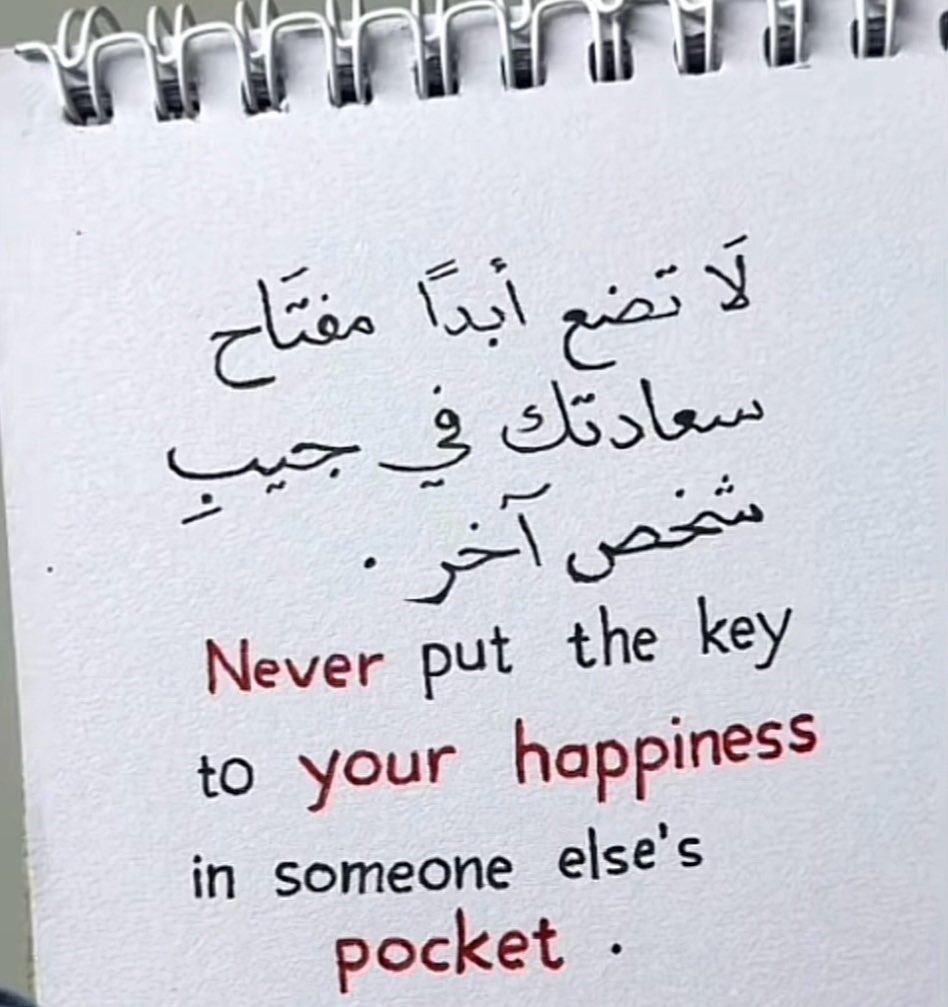 لَا تضع أبداً مفتَاح
سعادتك في جيبِ
شخص آخر .
Never put the key
to your happiness
in someone else's
pocket .